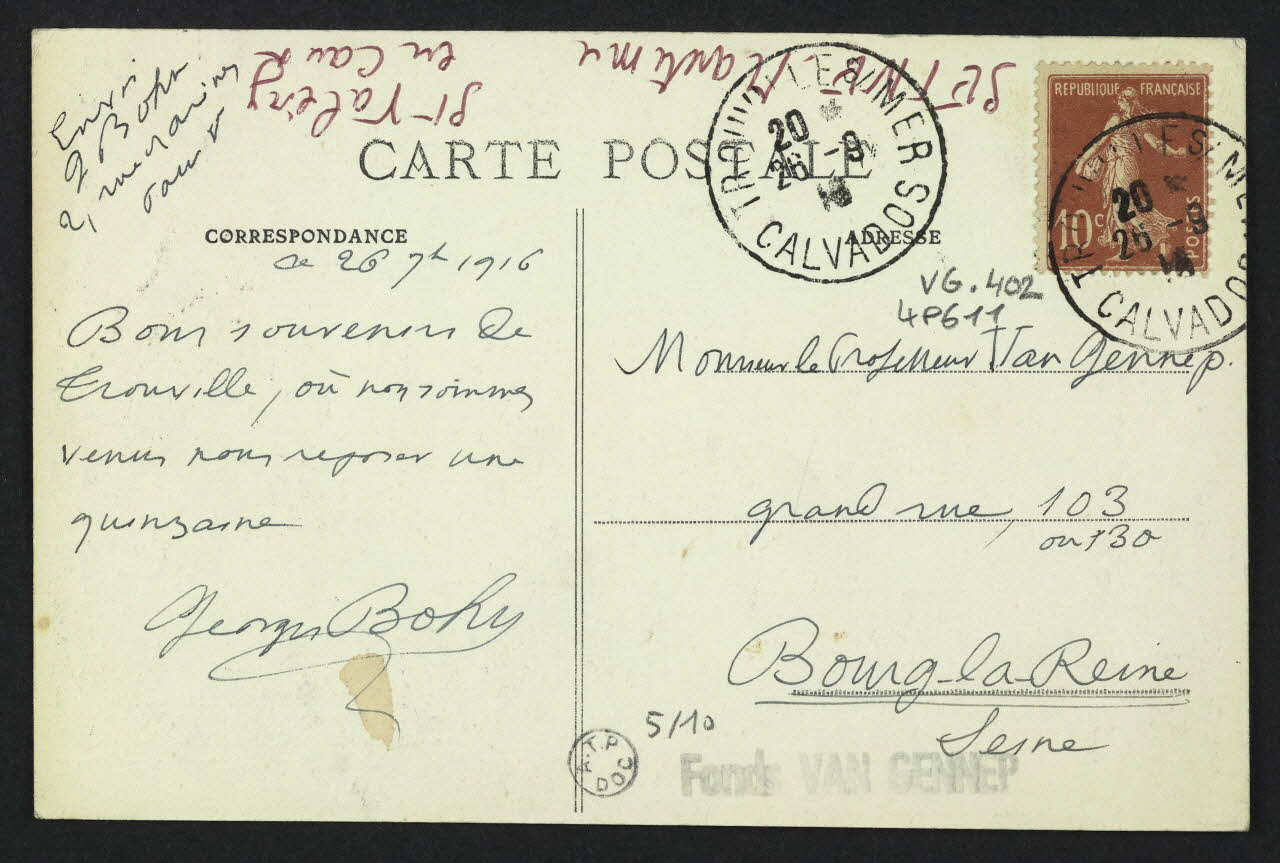 Envoi
G Bohn
21, rue
CARTE POSTALE
CORRESPONDANCE
ADRESSE
St Valéry
en Caux
SEINE Maritime
ce 26 7bre 1916
Bons souvenirs de
Trouville, où nous sommes
venus nous reposer une
quinzaine
Georges Bohn
TROUVILLE S/MER SOS
20 *
26 -9
16
CALVADOS
RÉPUBLIQUE FRANÇAISE
10 c
POSTES
TROUVILLE S/MER
20 *
26 -9
16
CALVADOS
VG.402
4P611
Monsieur le Professeur Van Gennep.
grand rue, 103
ou 130
Bourg-la-Reine
Seine
5/10
A.T.P
DOC
Fonds VAN GENNEP